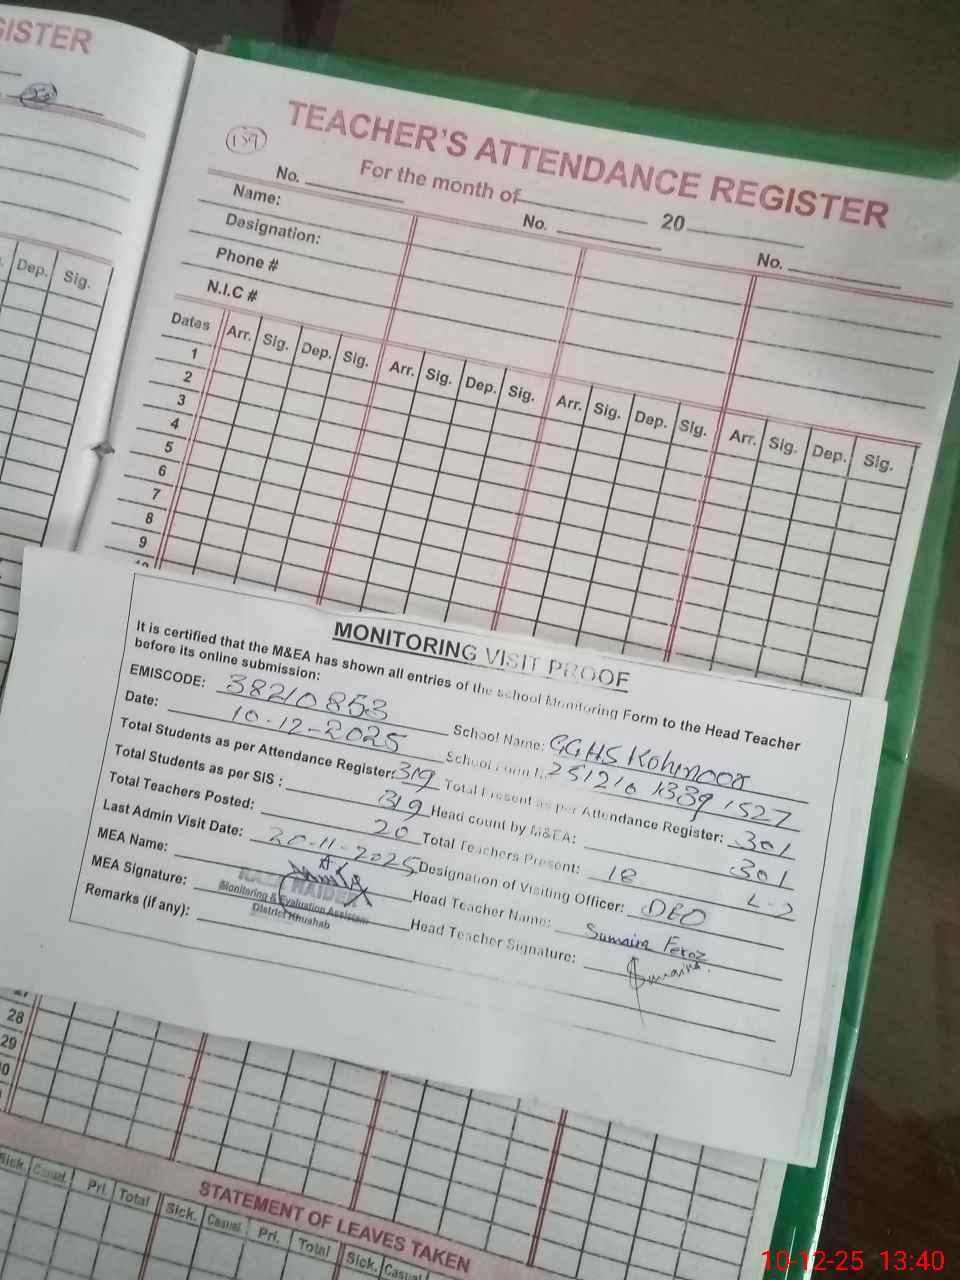 GISTER
TEACHER'S ATTENDANCE REGISTER
139
For the month of 20
No. No. No.
Name:
Dasignation:
Phone #
N.I.C #
Dep. Sig.
Dates Arr. Sig. Dep. Sig. Arr. Sig. Dep. Sig. Arr. Sig. Dep. Sig. Arr. Sig. Dep. Sig.
1
2
3
4
5
6
7
8
9
10
MONITORING VISIT PROOF
It is certified that the M&EA has shown all entries of the school Monitoring Form to the Head Teacher
before its online submission:
EMISCODE: 38210853 School Name: GGHS Kohinoor
Date: 10-12-2025 School Form
Total Students as per Attendance Register: 319 Total Present as per Attendance Register: 301
Total Students as per SIS : 319 Head count by M&EA: 301
Total Teachers Posted: 20 Total Teachers Present: 18 L-2
Last Admin Visit Date: 20-11-2025 Designation of Visiting Officer: DEO
MEA Name: Head Teacher Name: Sumaira Feroz
MEA Signature: Head Teacher Signature: Sumaira
RAZA HAIDER
Monitoring & Evaluation Assistant
District Khushab
Remarks (if any):
28
29
STATEMENT OF LEAVES TAKEN
Sick. Casual. Pri. Total Sick. Casual. Pri. Total Sick. Casual
10-12-25 13:40